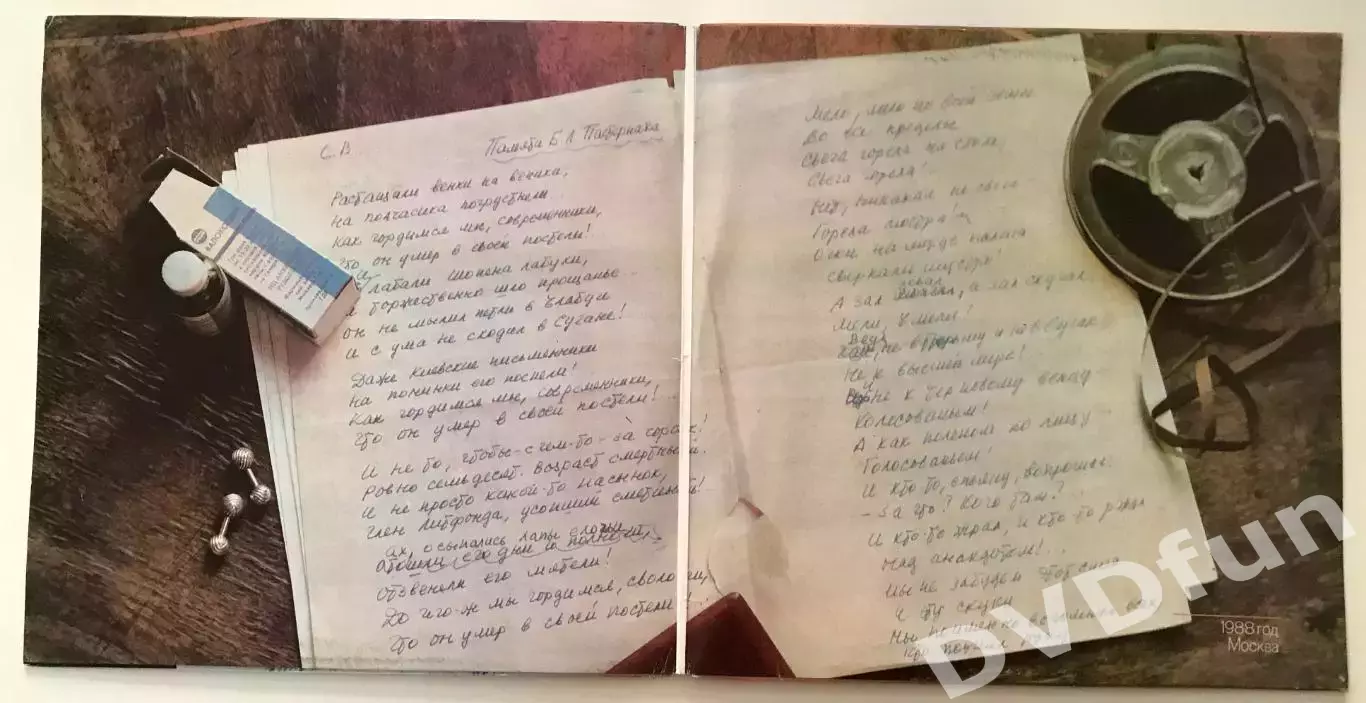 С. В
Памяти Б Л Пастернака
Растащали венки на веники,
На полчасика погрустнели...
Как гордимся мы, современники,
Что он умер в своей постели!
И лабали Шопена лабухи,
И торжественно шло прощанье...
Он не мылил петли в Елабуге
И с ума не сходил в Сучане!
Даже киевские письменники
На поминки его поспели!
Как гордимся мы, современники,
Что он умер в своей постели!..
И не то, чтобы с чем-то-за сорок!
Ровно семьдесят. возраст смертный.
И не просто какой-то пасынок,
Член литфонда, усопший сметный!
Ах, осыпались лапы
Отзвенели его метели!
До чего-ж мы гордимся, сволочи,
Что он умер в своей постели!
Мело, мело по всей земле
Во все пределы
Свеча горела на столе,
Свеча горела!
Нет, никакая не свеча -
Горела люстра!
Очки на морде палача
сверкали шустро!
зевал
А зал, а зал скучал,
Мели, Емеля!
Ведь
не в тюрьму и не в Сучан
Не к высшей мере!
И не к терновому венцу
Колесованьем!
А как поленом по лицу -
Голосованьем!
И кто-то, спьяну, вопрошал:
- За что? Кого там?..
И кто-то жрал, и кто-то ржал
Над анекдотом!..
Мы не забудем
И эту скуку
Мы поименно вспомним всех
Кто поднял руку!
1988 год
Москва
DVDfun